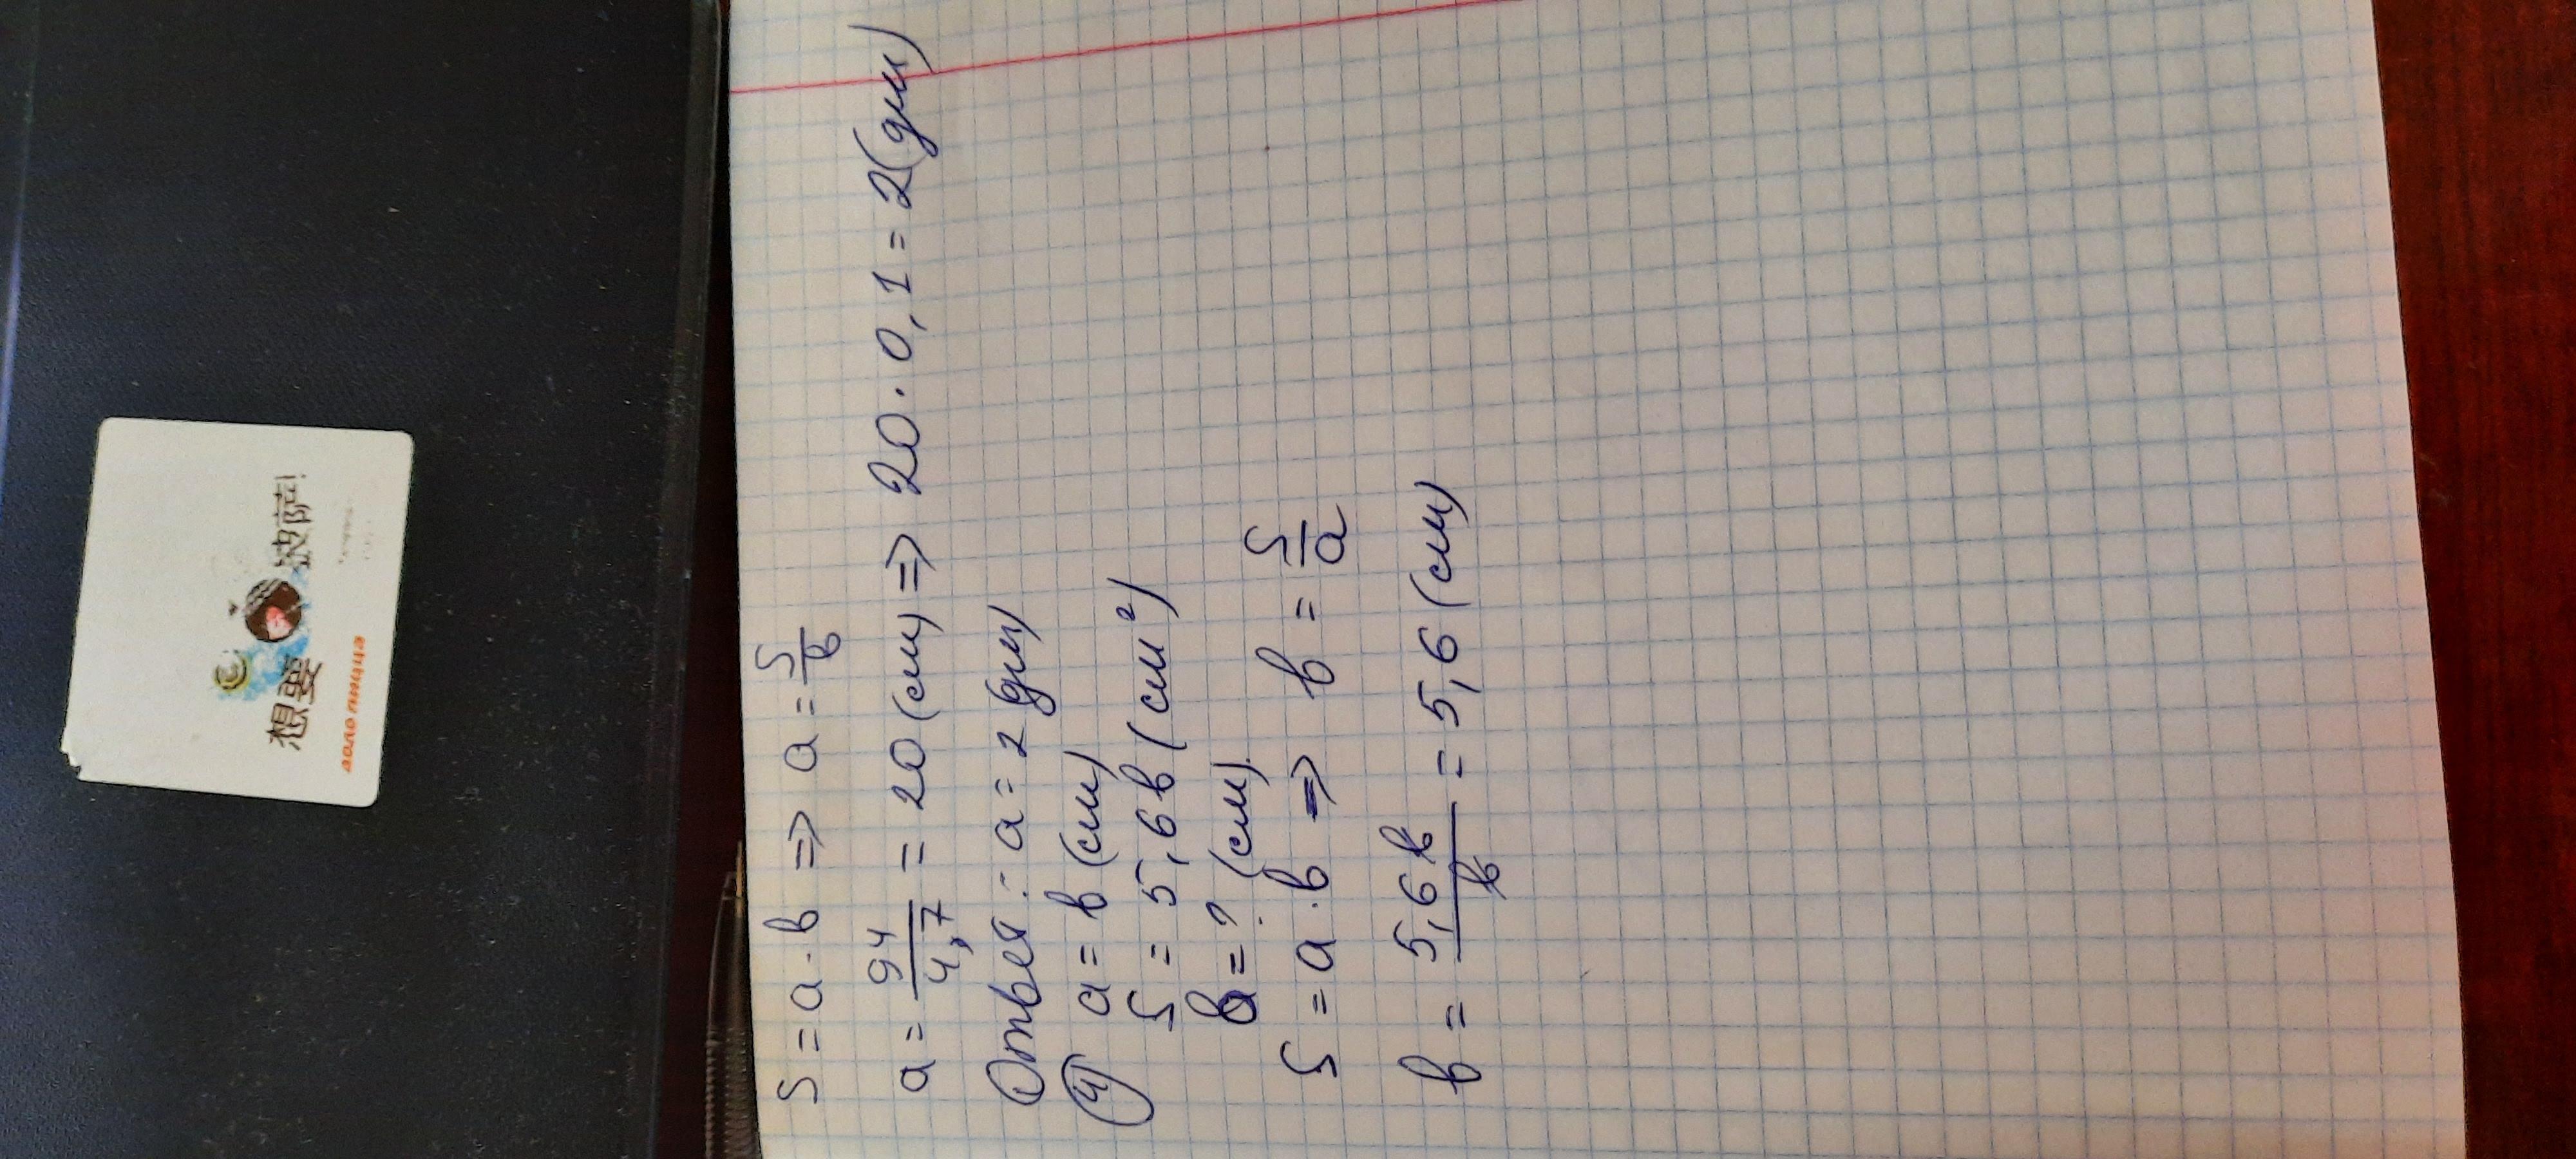 S = a · b ⇒ a = S/b
a = 94/4,7 = 20 (см) ⇒ 20 · 0,1 = 2 (дм)
Ответ: a = 2 дм
4) a = b (см)
S = 5,6b (см²)
b = ? (см)
S = a · b ⇒ b = S/a
b = 5,6b/b = 5,6 (см)
想要 披萨!